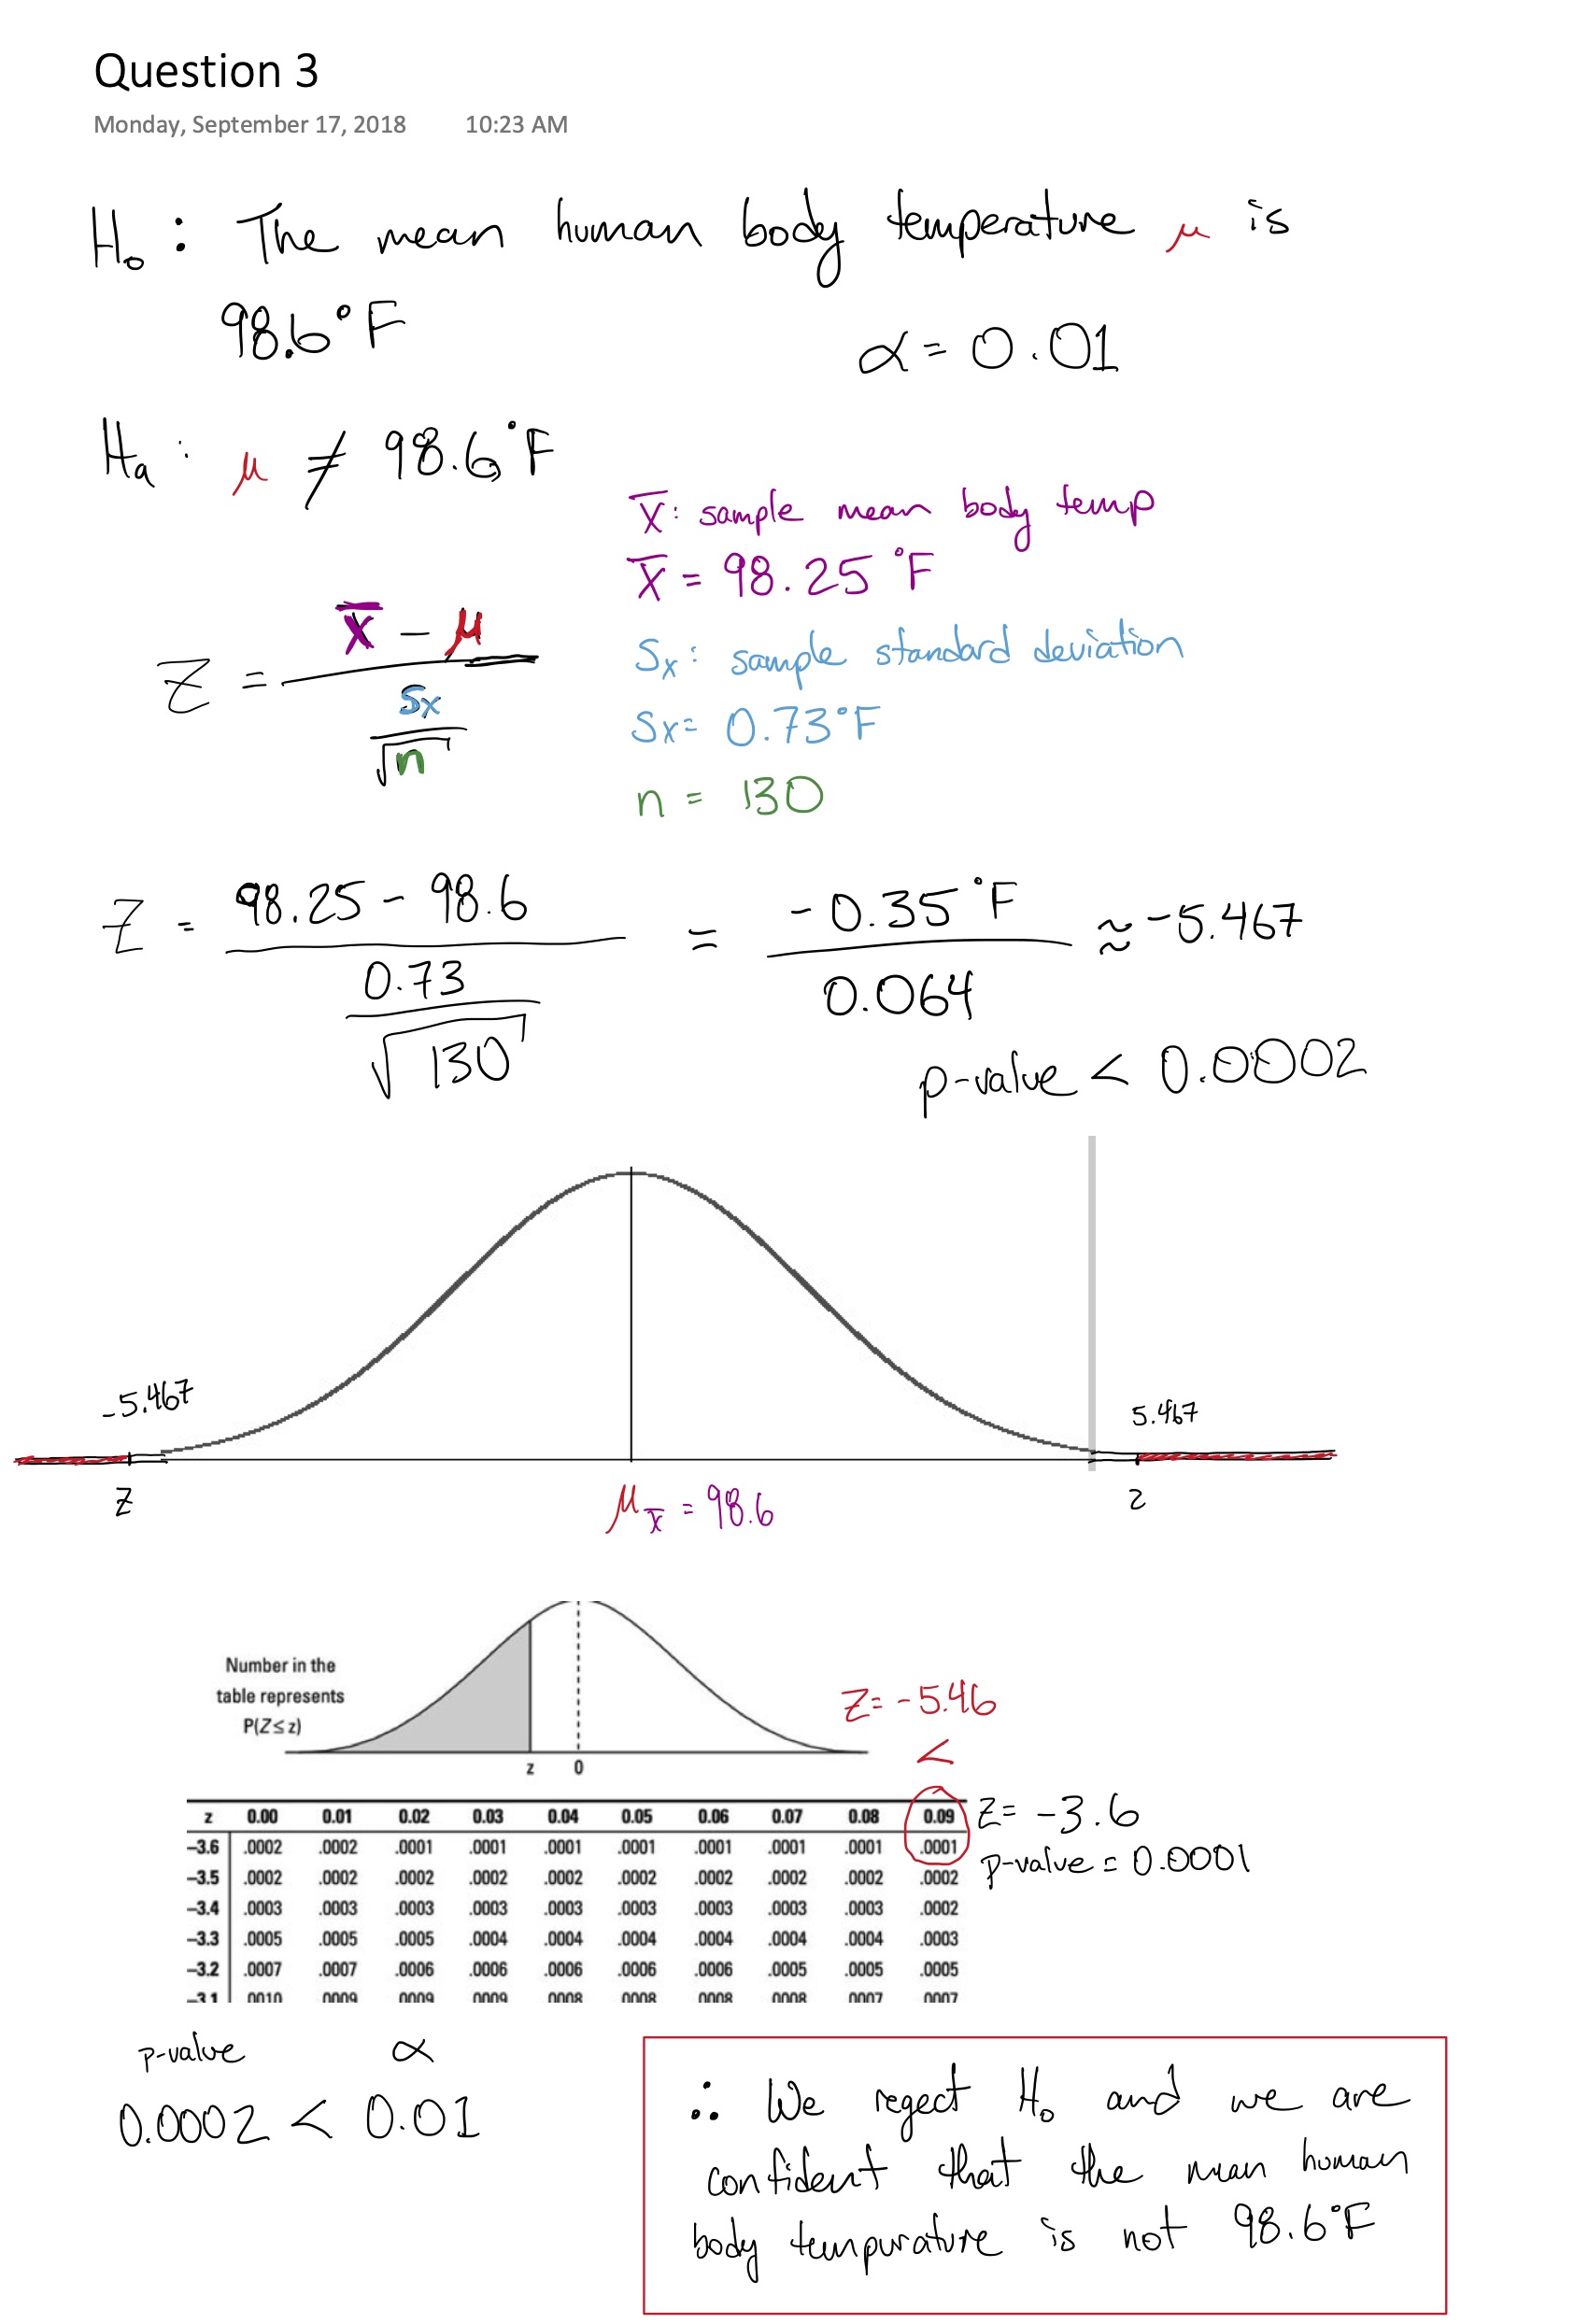 Question 3
Monday, September 17, 2018 10:23 AM
H₀ : The mean human body temperature μ is
98.6°F
α = 0.01
Hₐ : μ ≠ 98.6°F
x̄: sample mean body temp
x̄ = 98.25 °F
Z = (x̄ - μ) / (Sx / √n)
Sx: sample standard deviation
Sx = 0.73°F
n = 130
Z = (98.25 - 98.6) / (0.73 / √130) = -0.35 °F / 0.064 ≈ -5.467
p-value < 0.0002
-5.467 5.467
Z Z
μx̄ = 98.6
Number in the
table represents
P(Z ≤ z)
z 0
Z = -5.46
<
z 0.00 0.01 0.02 0.03 0.04 0.05 0.06 0.07 0.08 0.09
Z = -3.6
–3.6 .0002 .0002 .0001 .0001 .0001 .0001 .0001 .0001 .0001 .0001
p-value = 0.0001
–3.5 .0002 .0002 .0002 .0002 .0002 .0002 .0002 .0002 .0002 .0002
–3.4 .0003 .0003 .0003 .0003 .0003 .0003 .0003 .0003 .0003 .0002
–3.3 .0005 .0005 .0005 .0004 .0004 .0004 .0004 .0004 .0004 .0003
–3.2 .0007 .0007 .0006 .0006 .0006 .0006 .0006 .0005 .0005 .0005
–3.1 .0010 .0009 .0009 .0009 .0008 .0008 .0008 .0008 .0007 .0007
p-value α
0.0002 < 0.01
∴ We regect H₀ and we are
confident that the mean human
body tempurature is not 98.6°F